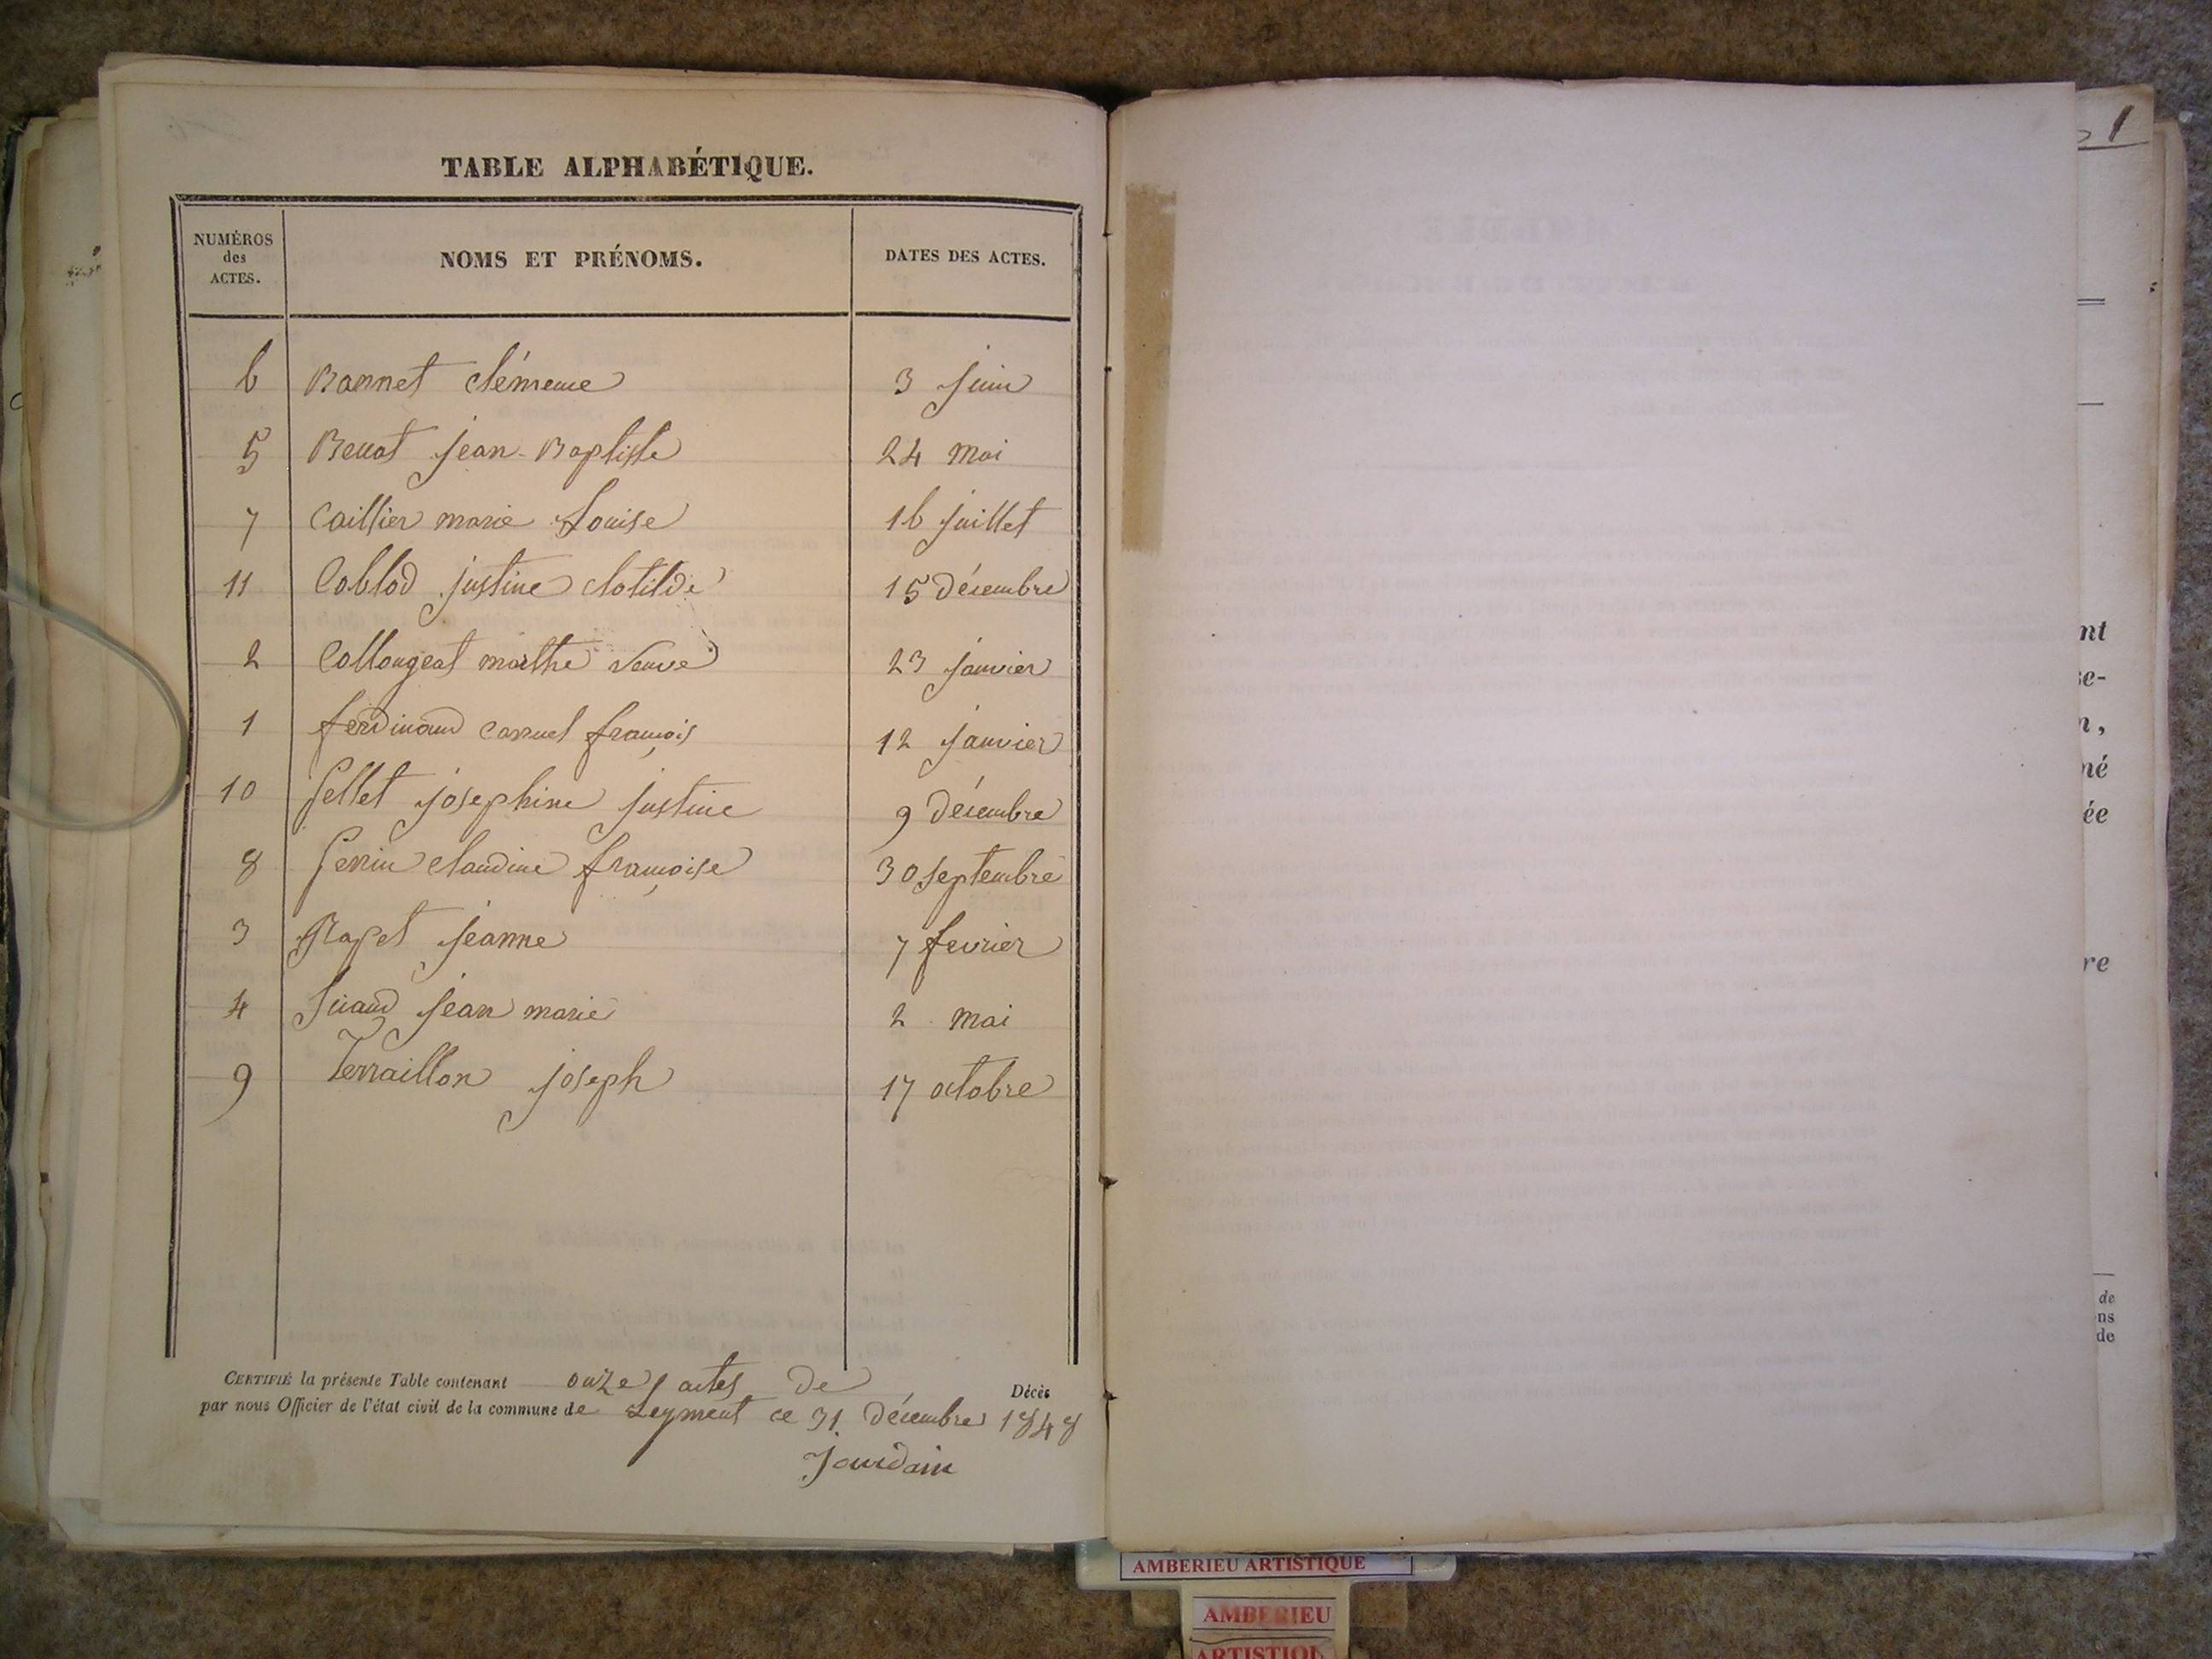 TABLE ALPHABÉTIQUE.
NUMÉROS des ACTES. NOMS ET PRÉNOMS. DATES DES ACTES.
6 Bonnet clémence 3 juin
5 jean-Baptiste 24 mai
7 Caillier marie Louise 16 juillet
11 Coblod justine clotilde 15 décembre
2 Collongeat marthe veuve 23 janvier
1 ferdinand françois 12 janvier
10 Pellet josephine justine 9 décembre
8 Perrin claudine françoise 30 septembre
3 jeanne 7 fevrier
4 jean marie 2 mai
9 Terraillon joseph 17 octobre
CERTIFIÉ la présente Table contenant onze actes de Décès
par nous Officier de l'état civil de la commune de Leyment ce 31 décembre 1848
Jourdain
1
nt
se-
n,
né
ée
re
de
ns
de
AMBERIEU ARTISTIQUE
AMBERIEU